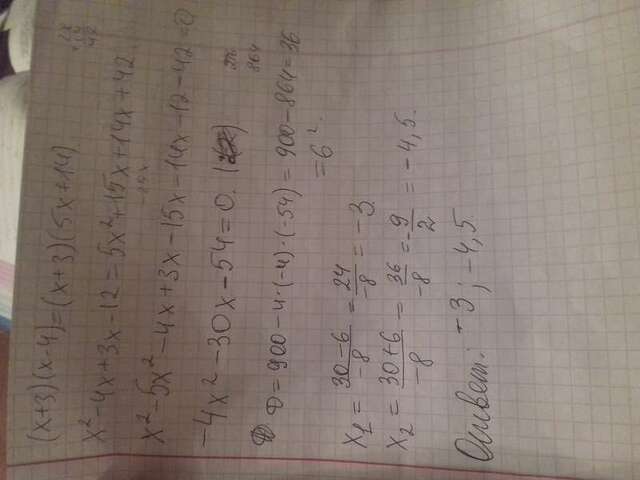 (x+3)(x-4)=(x+3)(5x+14)
x²-4x+3x-12=5x²+15x+14x+42.
x²-5x²-4x+3x-15x-14x-12-42=0
-4x²-30x-54=0.
D=900-4·(-4)·(-54)=900-864=36
=6².
x₁=\frac{30-6}{-8}=\frac{24}{-8}=-3.
x₂=\frac{30+6}{-8}=\frac{36}{-8}=-\frac{9}{2}=-4,5.
Ответ: -3; -4,5.